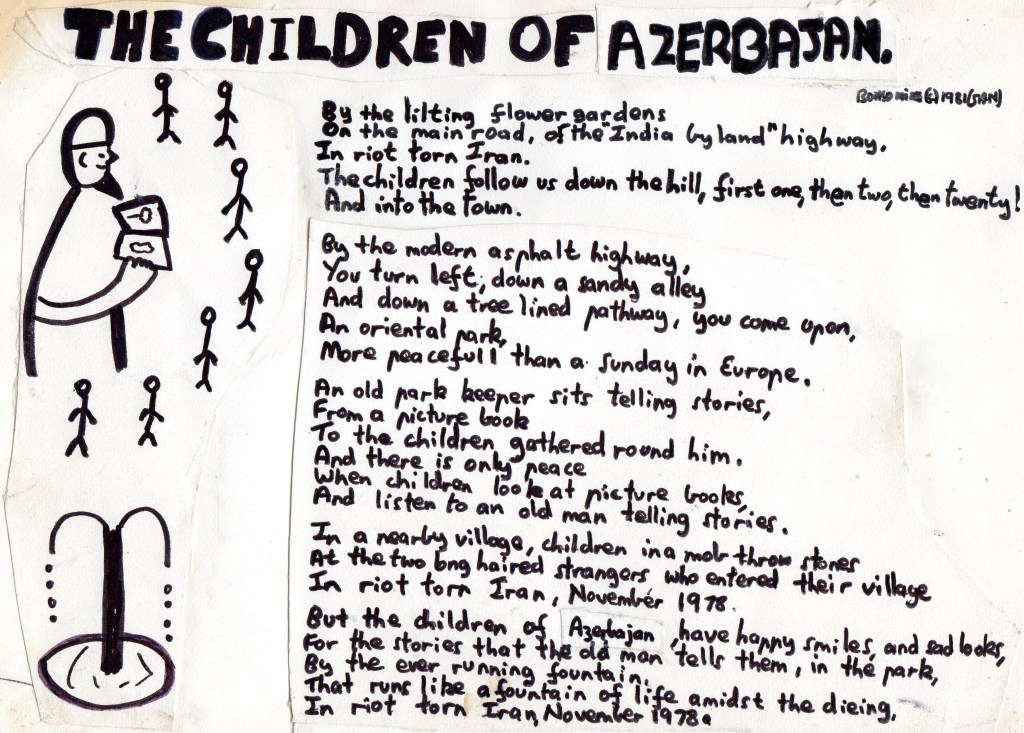 THE CHILDREN OF AZERBAJAN.
(C) 1981 (SIAN)
By the lilting flower gardens
On the main road, of the "India by land" highway,
In riot torn Iran.
The children follow us down the hill, first one, then two, then twenty!
And into the town.
By the modern asphalt highway,
You turn left, down a sandy alley
And down a tree lined pathway, you come upon,
An oriental park,
More peacefull than a sunday in Europe.
An old park keeper sits telling stories,
From a picture book
To the children gathered round him.
And there is only peace
When children look at picture books,
And listen to an old man telling stories.
In a nearby village, children in a mob throw stones
At the two long haired strangers who entered their village
In riot torn Iran, November 1978.
But the children of Azerbajan, have happy smiles, and sad looks,
For the stories that the old man tells them, in the park,
By the ever running fountain.
That runs like a fountain of life amidst the dieing,
In riot torn Iran, November 1978.